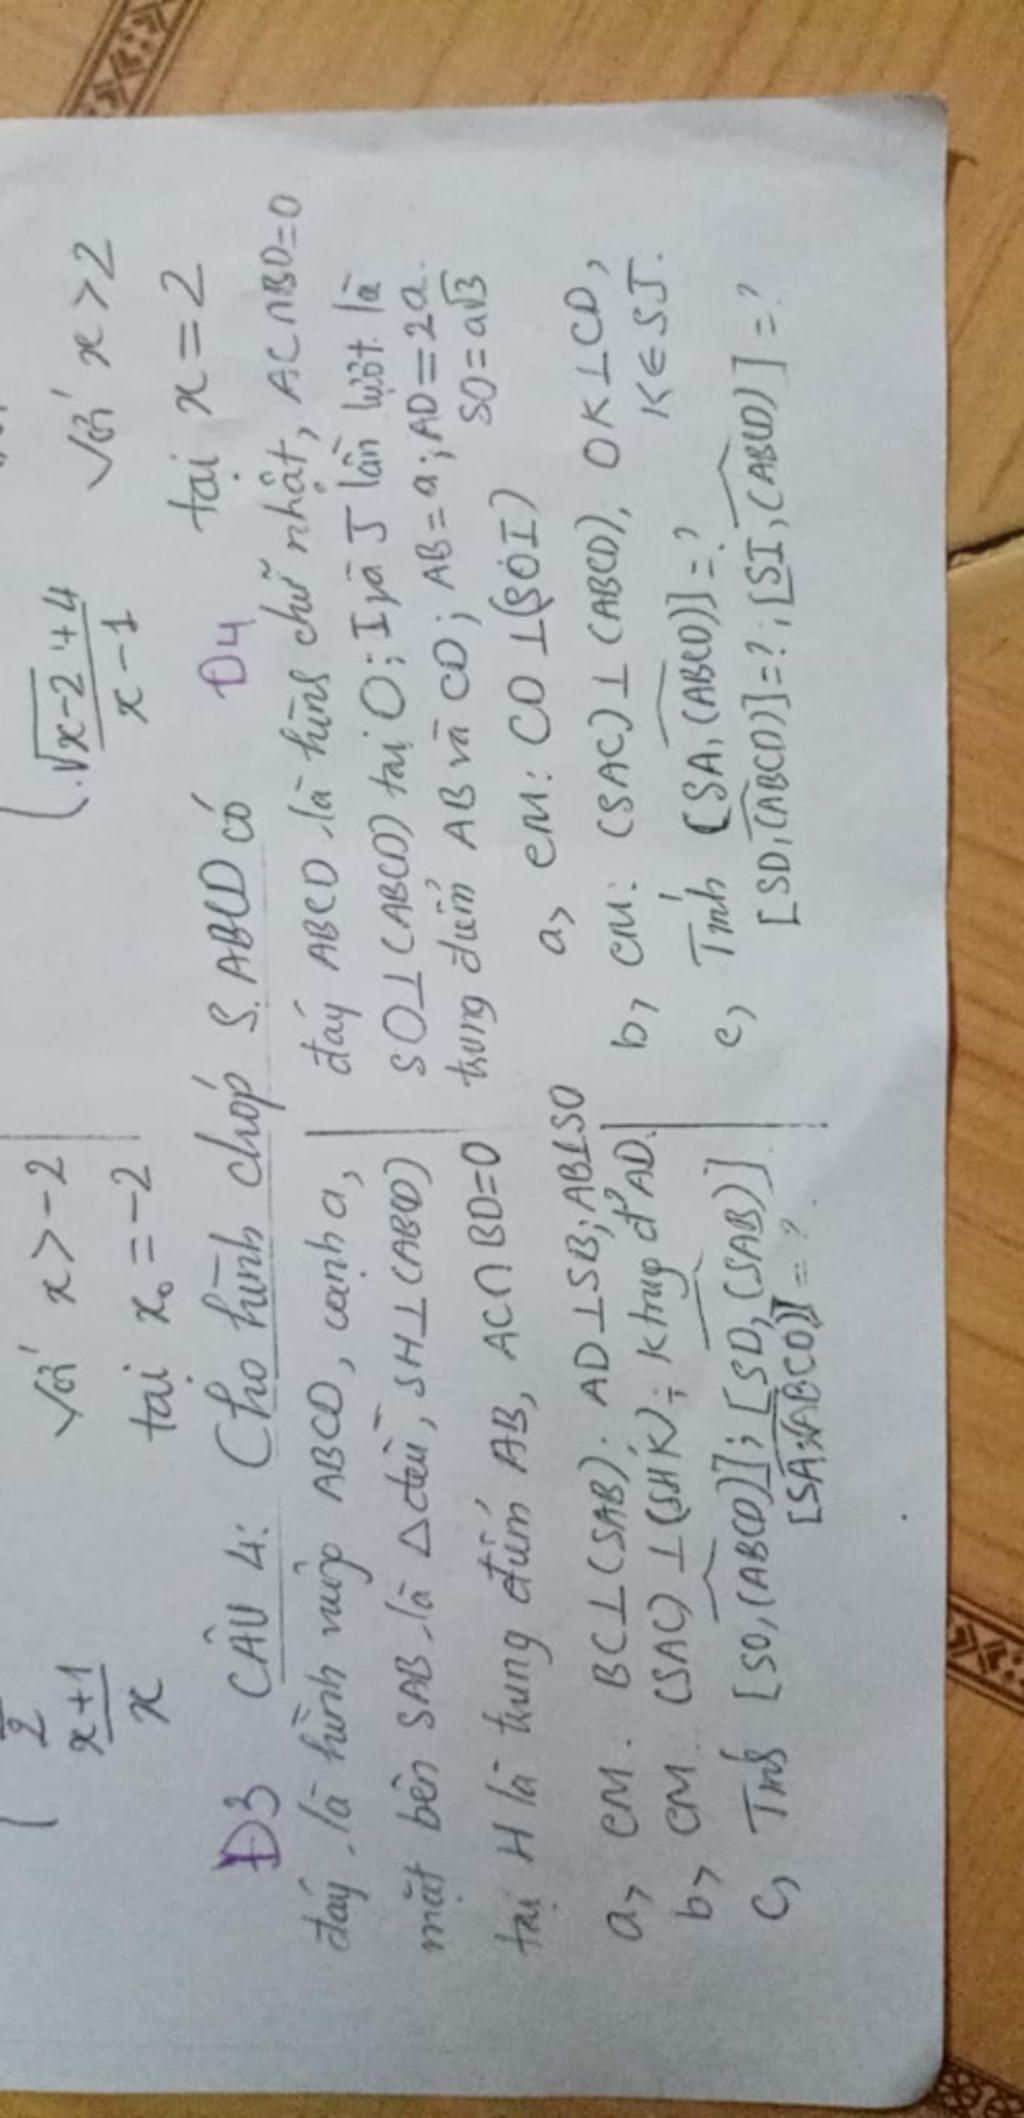 2
x+1
x
với x>-2
tại x₀=-2
√x-2+4
x-1
với x>2
tại x=2
Đ3 CÂU 4: Cho hình chóp S.ABCD có
đáy là hình vuông ABCD, cạnh a,
mặt bên SAB là Δ đều, SH⊥(ABCD)
tại H là trung điểm AB, AC∩BD=O
a, CM. BC⊥(SAB). AD⊥SB; AB⊥SO
b, CM. (SAC)⊥(SHK); K trung đ' AD.
c, Tính [SO,(ABCD)]; [SD,(SAB)]
[SA;(ABCD)]=?
Đ4
đáy ABCD là hình chữ nhật, AC∩BD=O
SO⊥(ABCD) tại O; I và J lần lượt là
trung điểm AB và CD; AB=a; AD=2a.
SO=a√3
a, CM: CD⊥(SOI)
b, CM: (SAC)⊥(ABCD); OK⊥CD,
K∈SJ.
c, Tính (SA,(ABCD)]=?
[SD,(ABCD)]=?; [SI,(ABCD)]=?